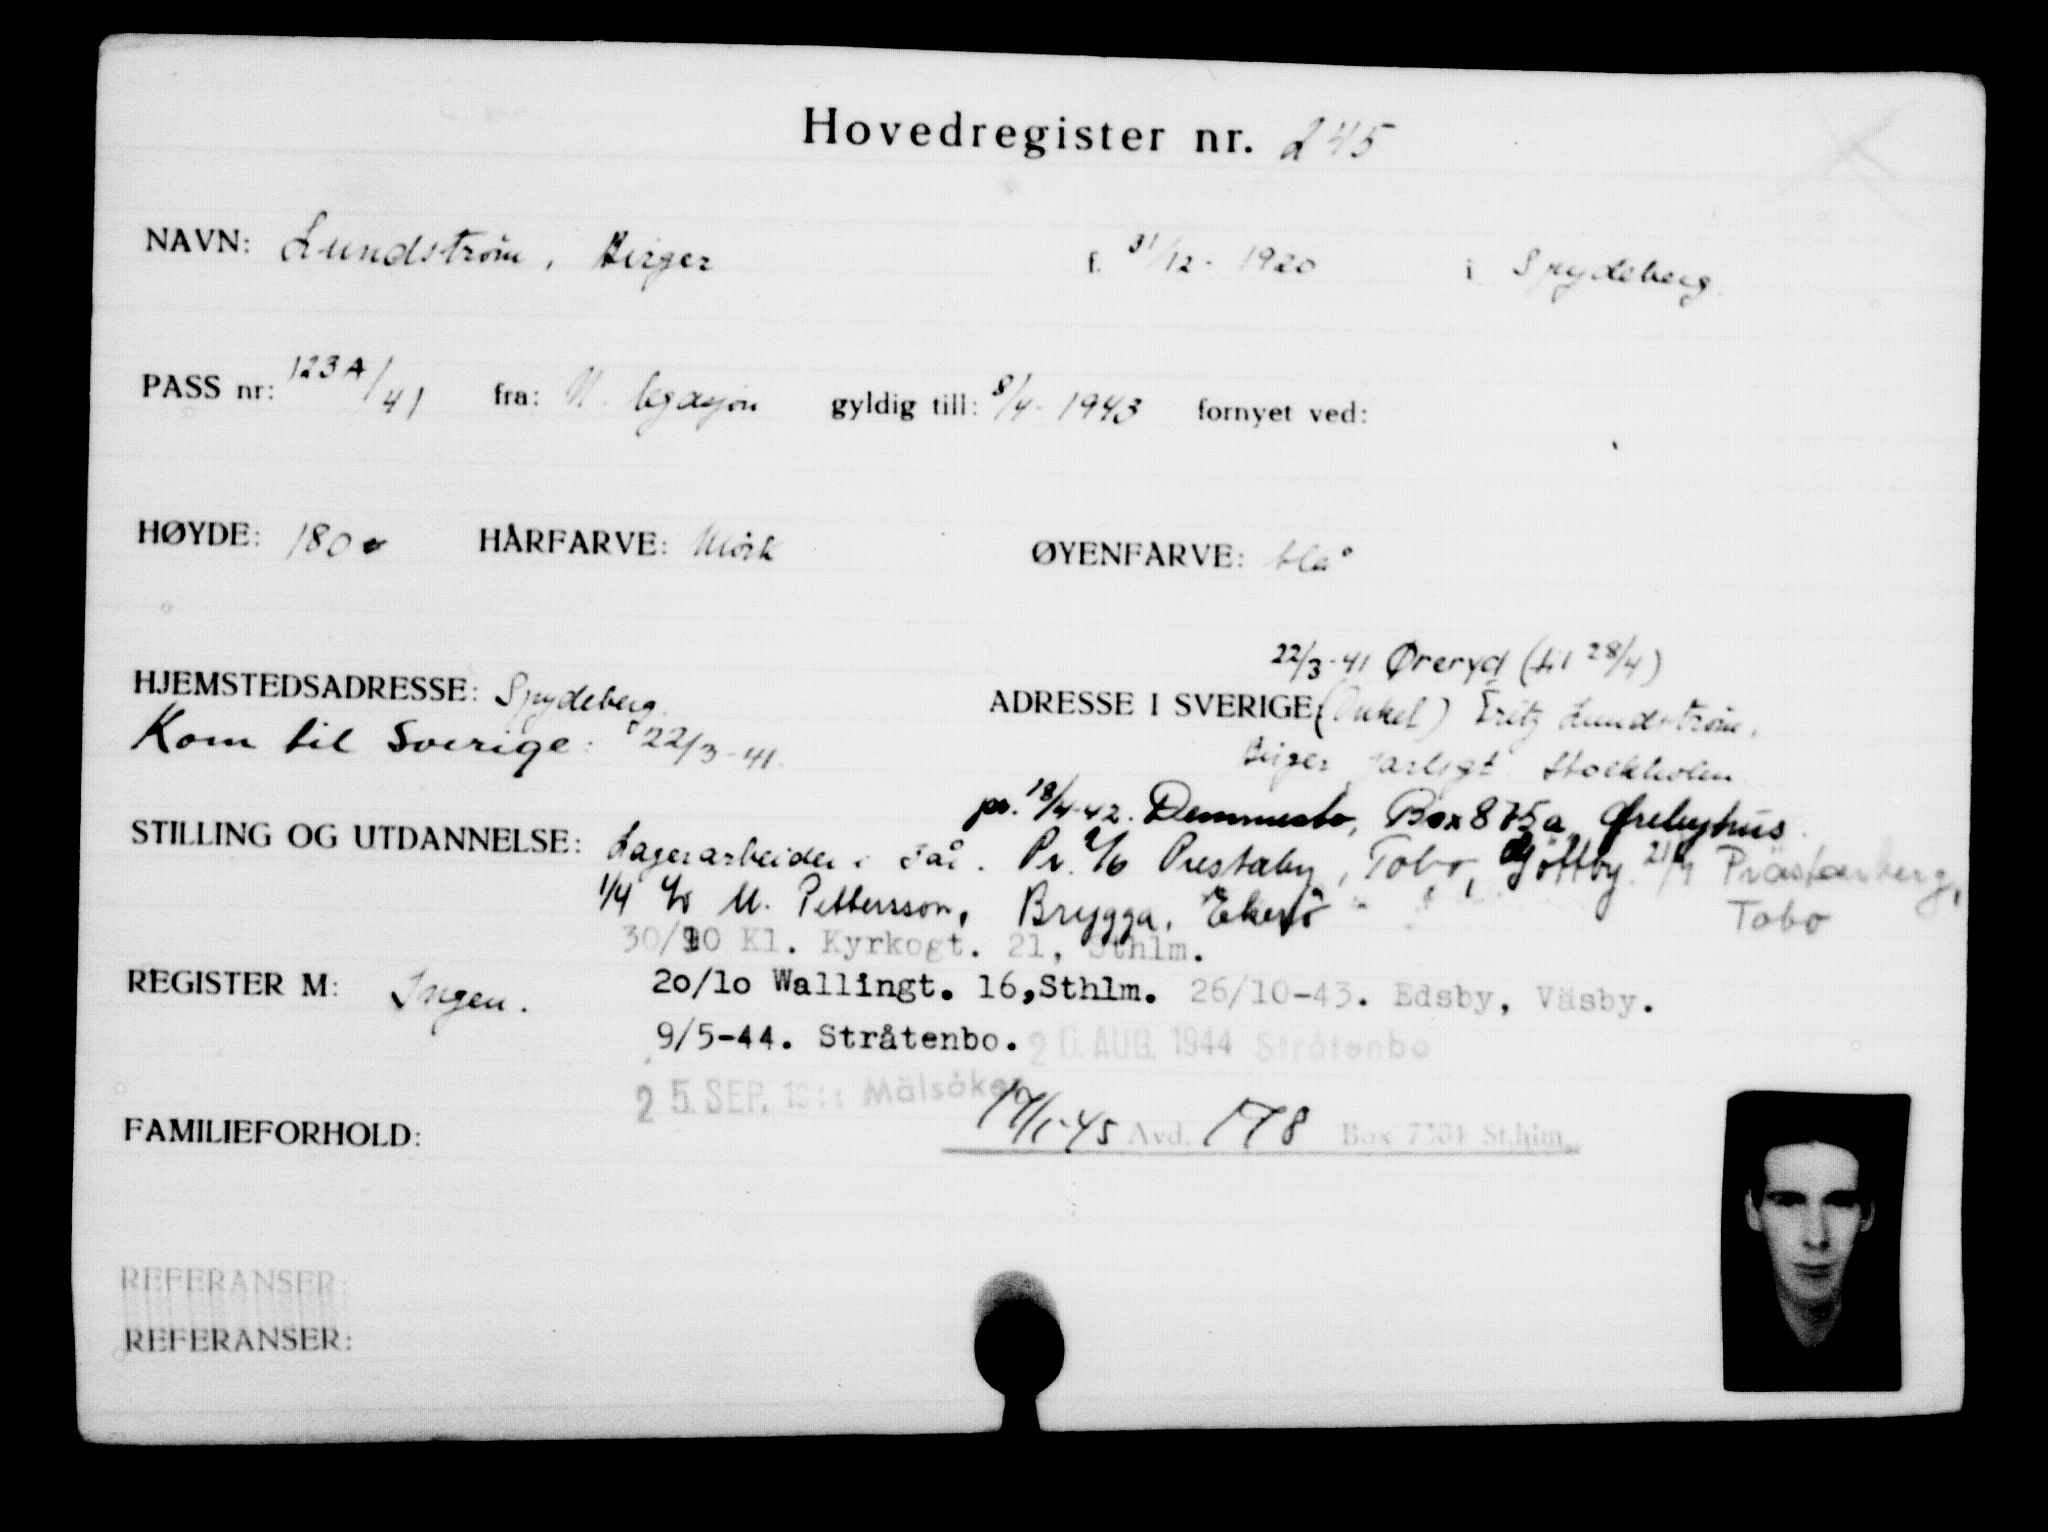 Hovedregister nr. 245
NAVN: Lundstrøm, Birger f. 31/12- 1920 i Spydeberg.
PASS nr: 123A/41 fra: N. legasjon gyldig till: 8/4- 1943 fornyet ved:
HØYDE: 180 HÅRFARVE: Mörk ØYENFARVE: blå
22/3-41 Øreryd (til 28/4)
HJEMSTEDSADRESSE: Spydeberg. ADRESSE I SVERIGE: (Onkel) Fritz Lundstrøm.
Kom til Sverige: 22/3-41. Birger Jarlsgt. Stockholm
pr. 18/4-42. Box 875a Ørebyhus.
STILLING OG UTDANNELSE: Lagerarbeider i Pr. Prestaby, Tobo, 21/4 Prästanberg,
1/4 c/o M. Pettersson, Brygga, Ekerö Tobo
30/10 Kl. Kyrkogt. 21, Sthlm.
REGISTER M: Ingen. 20/10 Wallingt. 16, Sthlm. 26/10-43. Edsby, Väsby.
9/5-44. Stråtenbo. 20. AUG. 1944 Stråtenbo
25. SEP. Mälsåker
FAMILIEFORHOLD: /1-45 Avd. 178 Box 7301 Sthlm.
REFERANSER:
REFERANSER: